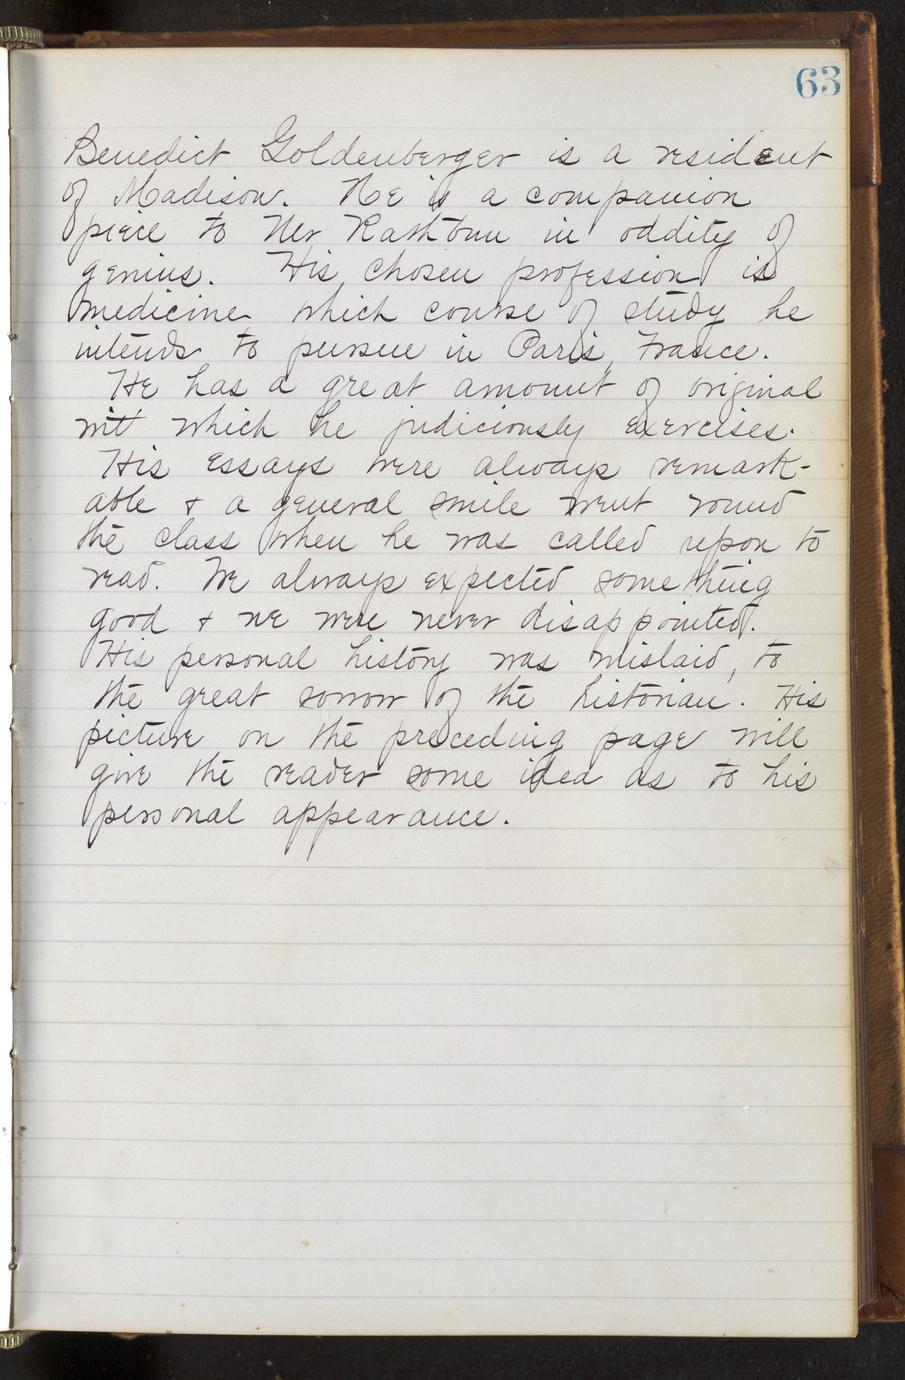 63
Benedict Goldenberger is a resident
of Madison. He is a companion
piece to Mr Rathbun in oddity of
genius. His chosen profession is
medicine which course of study he
intends to pursue in Paris, France.
He has a great amount of original
wit which he judiciously exercises.
His essays were always remark-
able & a general smile went round
the class when he was called upon to
read. We always expected something
good & we were never disappointed.
His personal history was mislaid, to
the great sorrow of the historian. His
picture on the preceding page will
give the reader some idea as to his
personal appearance.